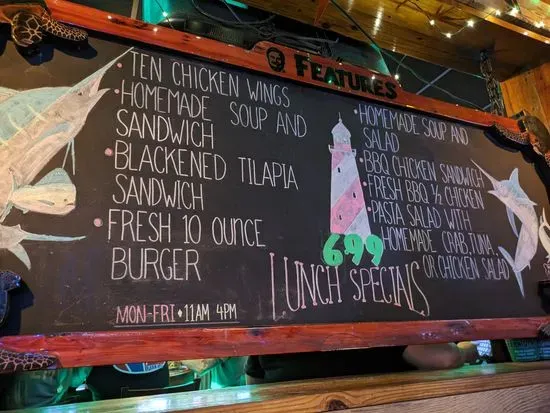 FEATURES
• TEN CHICKEN WINGS
• HOMEMADE SOUP AND
SANDWICH
• BLACKENED TILAPIA
SANDWICH
• FRESH 10 OUNCE
BURGER
MON-FRI • 11AM 4PM
6.99
LUNCH SPECIALS
• HOMEMADE SOUP AND
SALAD
• BBQ CHICKEN SANDWICH
• FRESH BBQ ½ CHICKEN
• PASTA SALAD WITH
HOMEMADE CRAB, TUNA,
OR CHICKEN SALAD